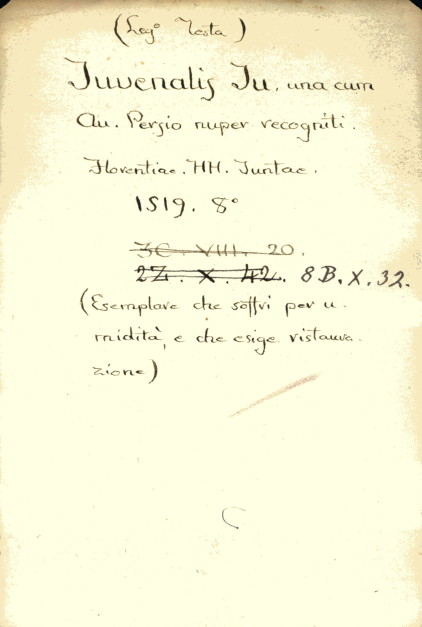 (Leg° Testa)
Juvenalis Ju. una cum
Au. Persio nuper recogniti.
Florentiae. HH. Juntae.
1519. 8°
3C. VIII. 20.
2Z. X. 42. 8 B. X. 32.
(Esemplare che soffrì per u-
midità, e che esige ristaura-
zione)